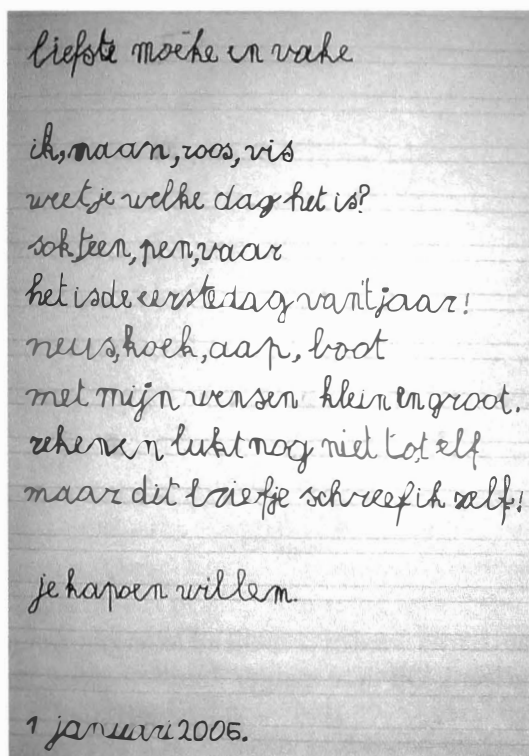 liefste moeke en vake
ik, maan, roos, vis
weet je welke dag het is?
sok, teen, pen, vaar
het is de eerste dag van't jaar!
neus, hoek, aap, boot
met mijn wensen klein en groot.
rekenen lukt nog niet tot elf
maar dit briefje schreef ik zelf!
je kapoen willem.
1 januari 2005.